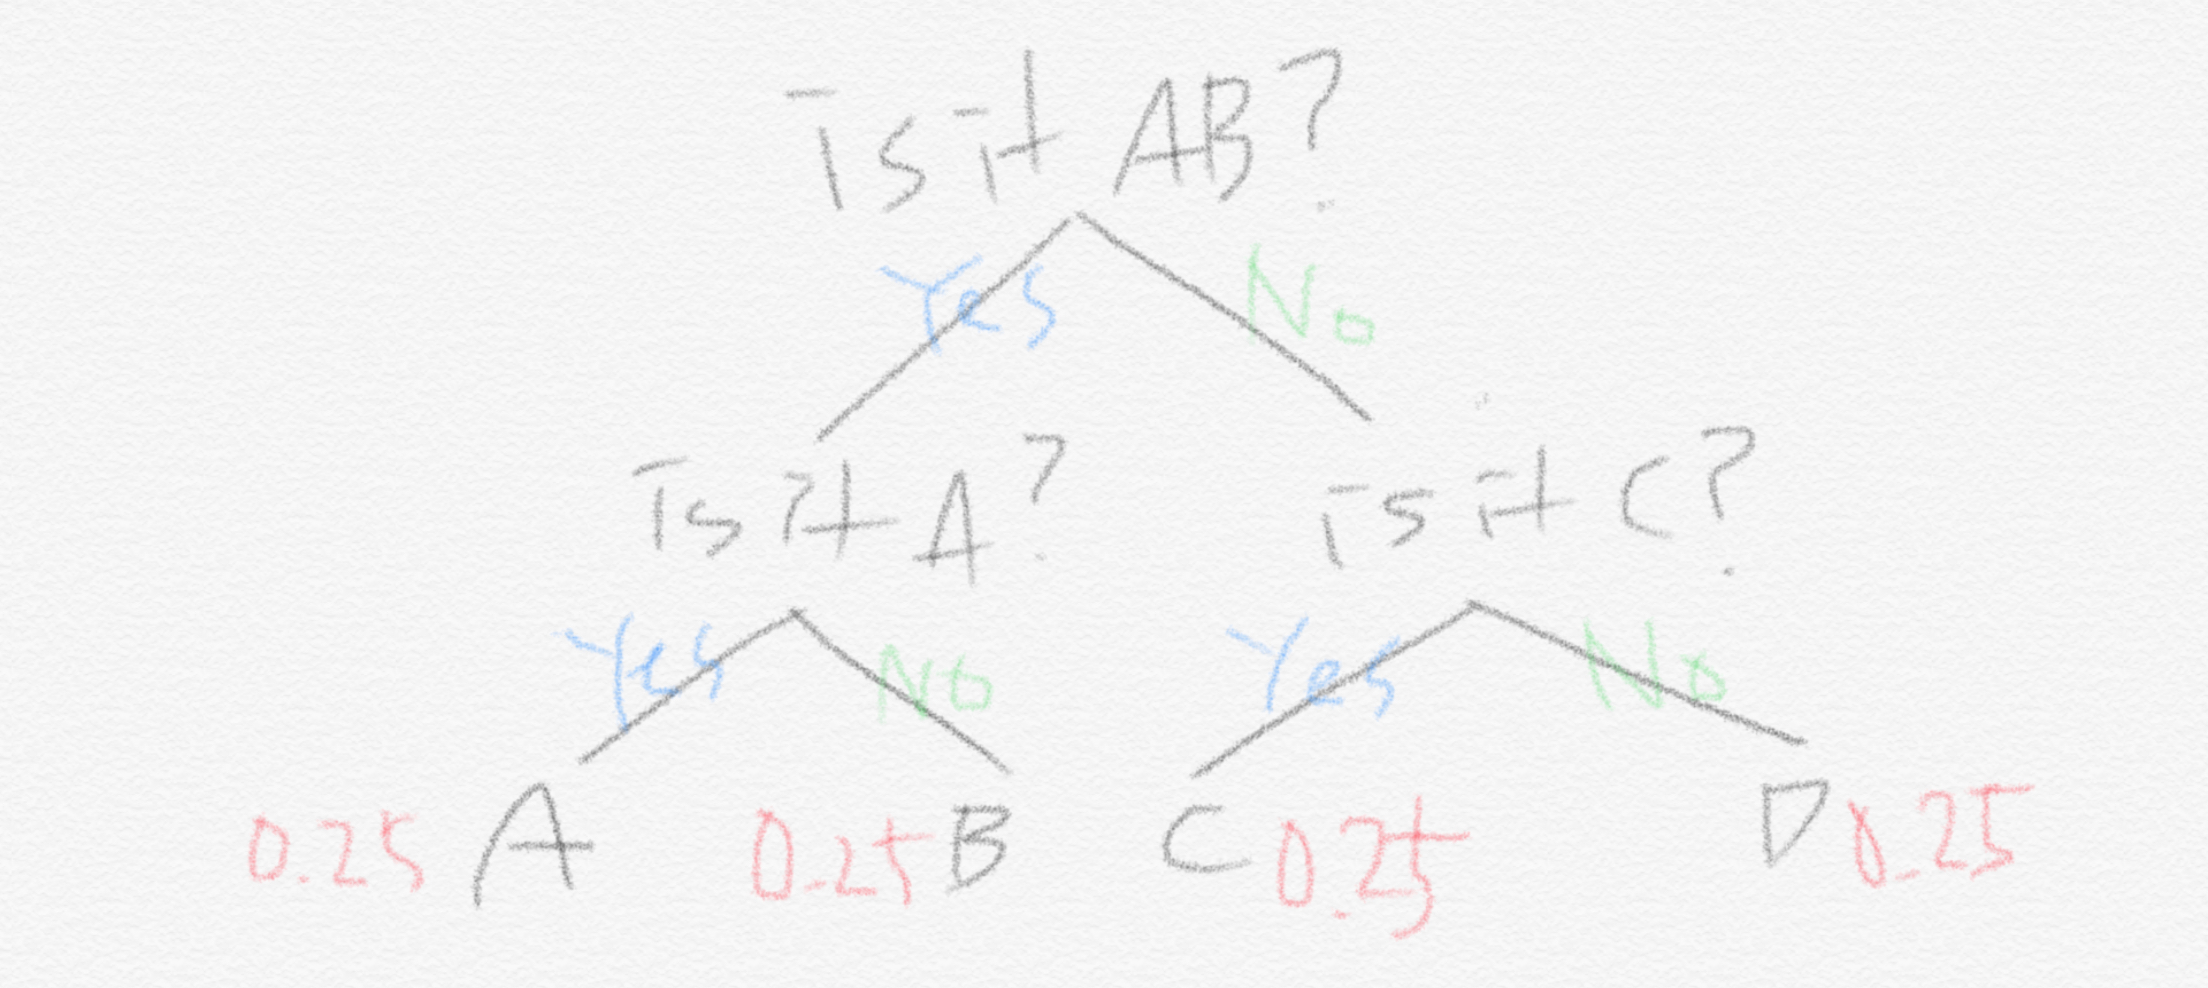 is it AB?
Yes No
is it A? is it C?
Yes No Yes No
0.25 A 0.25 B C 0.25 D 0.25